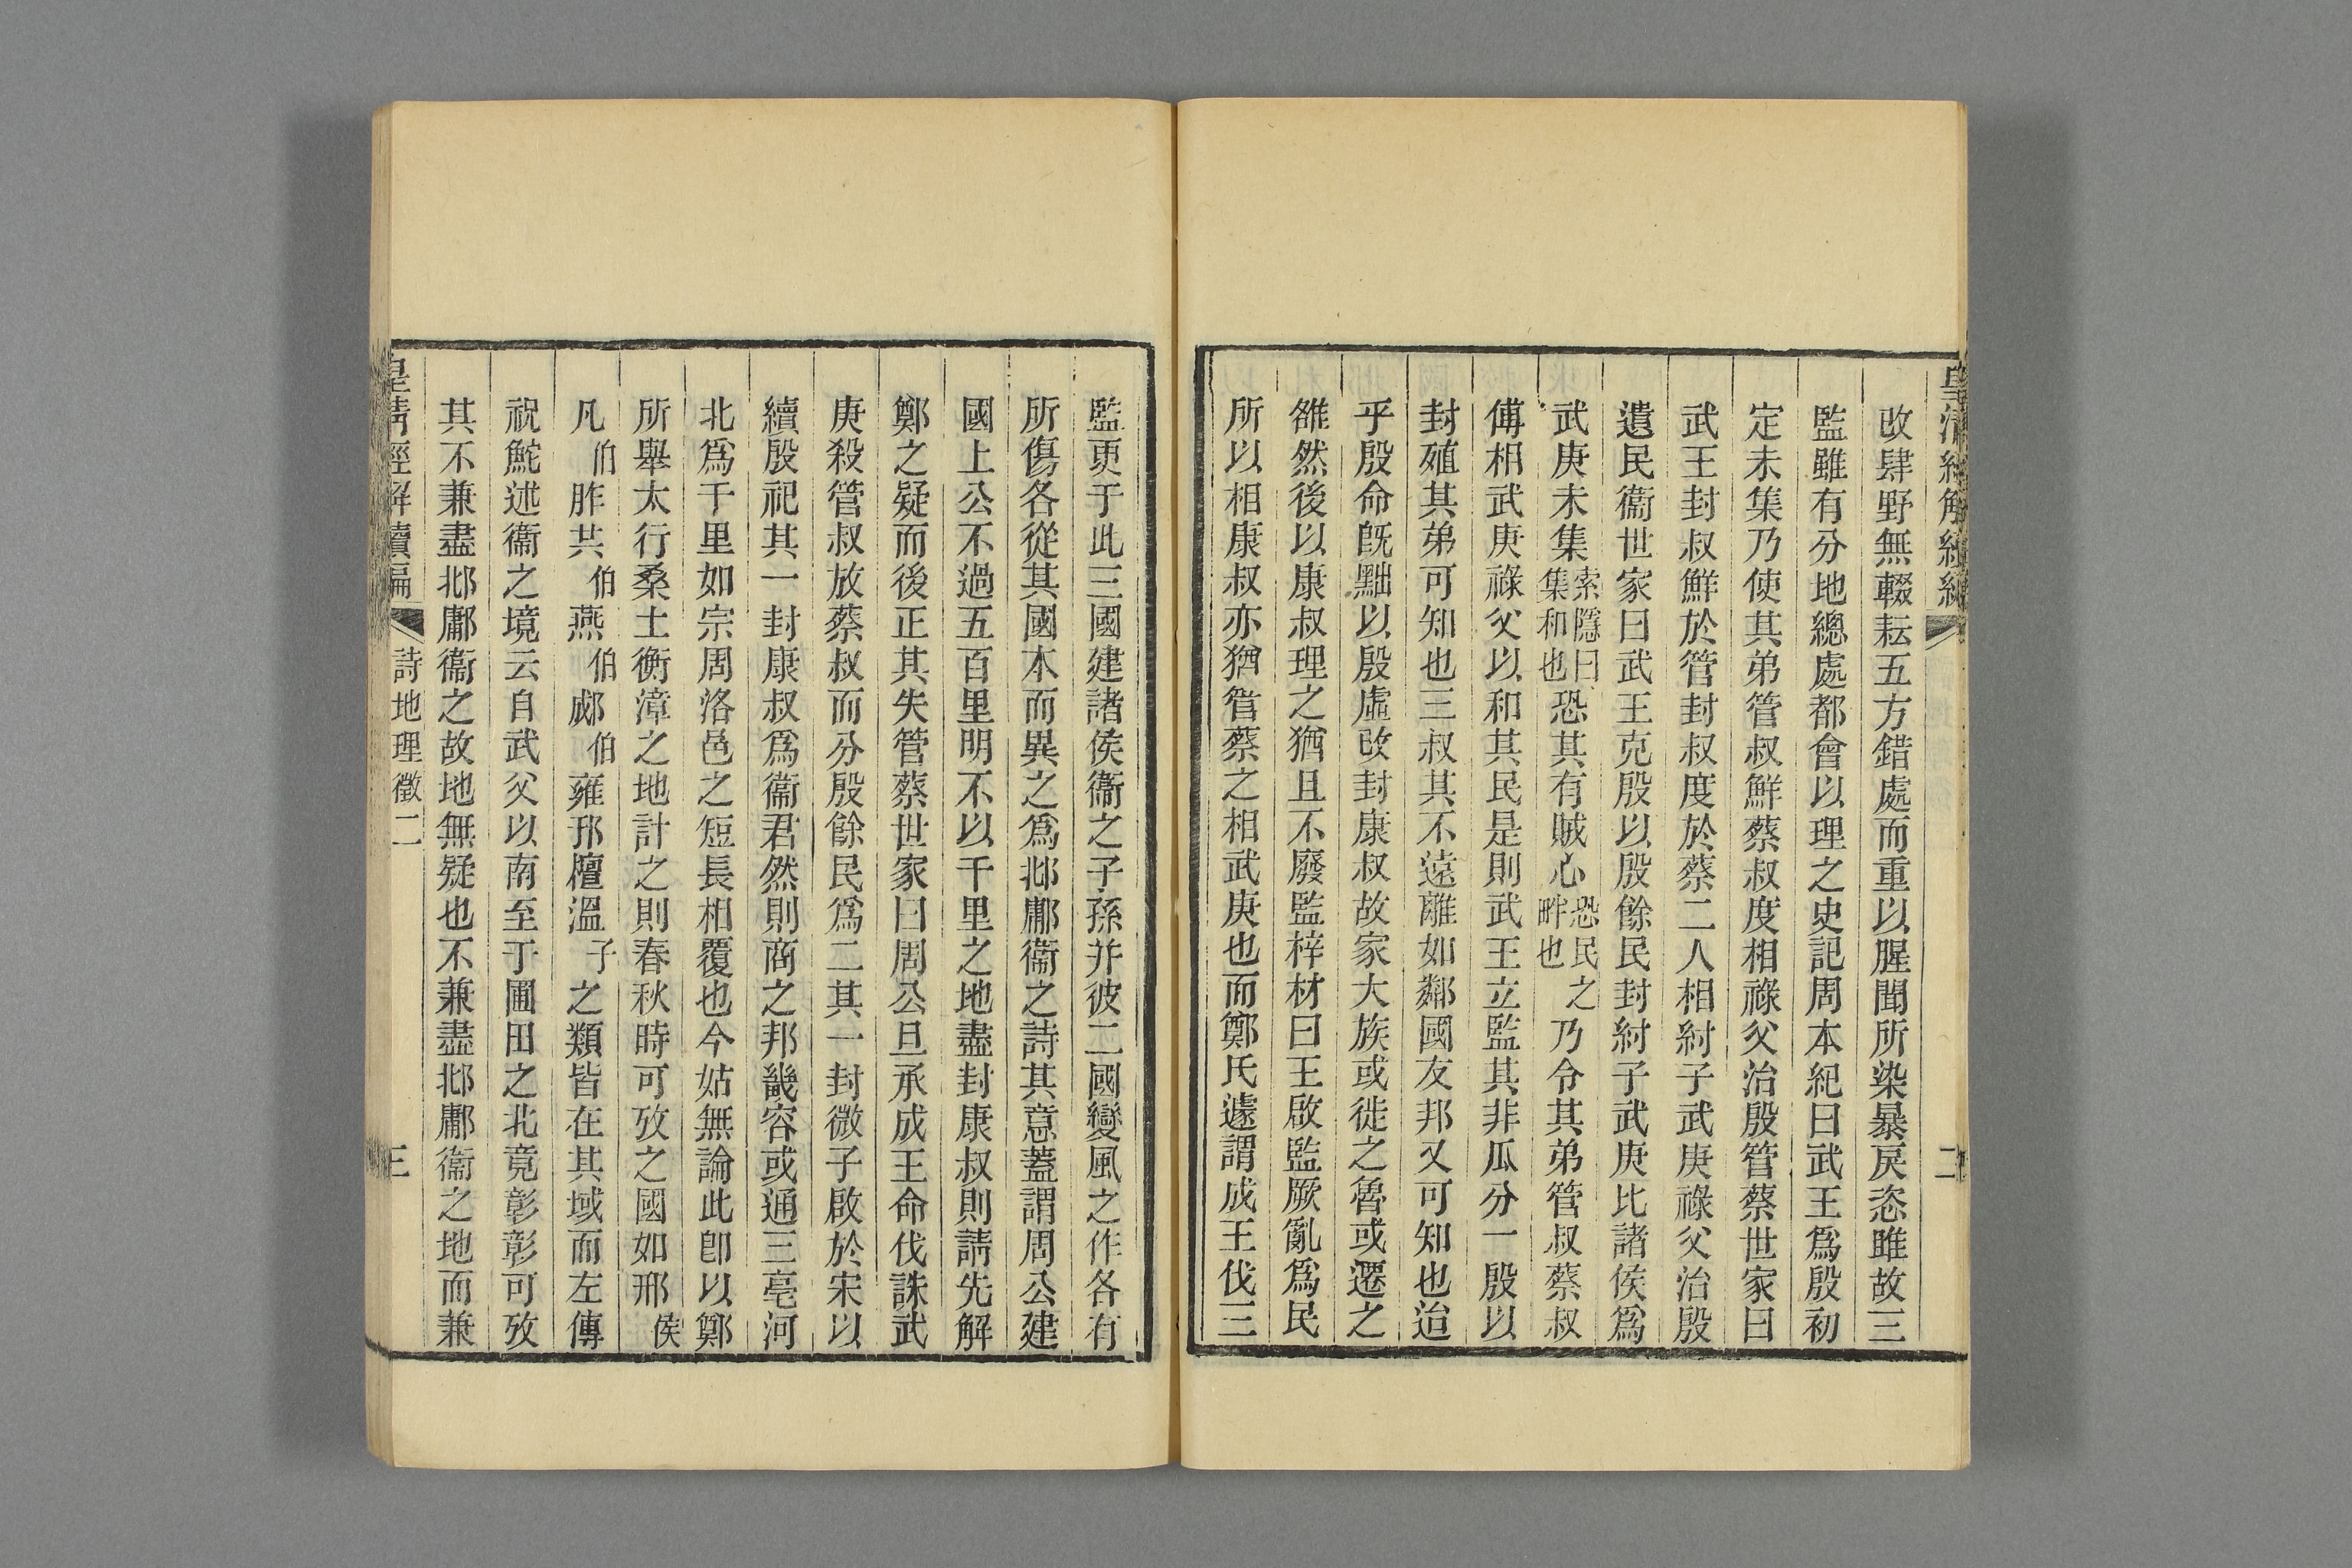 皇清經解續編
二
改肆野無輟耘五方錯處而重以腥聞所染暴戾恣雎故三
監雖有分地總處都會以理之史記周本紀曰武王爲殷初
定未集乃使其弟管叔鮮蔡叔度相祿父治殷管蔡世家曰
武王封叔鮮於管封叔度於蔡二人相紂子武庚祿父治殷
遺民衞世家曰武王克殷以殷餘民封紂子武庚比諸侯爲
武庚未集索隱曰集和也恐其有賊心恐民之畔也乃令其弟管叔蔡叔
傅相武庚祿父以和其民是則武王立監其非瓜分一殷以
封殖其弟可知也三叔其不遠離如鄰國友邦又可知也迨
乎殷命既黜以殷虛改封康叔故家大族或徙之魯或遷之
雒然後以康叔理之猶且不廢監梓材曰王啟監厥亂爲民
所以相康叔亦猶管蔡之相武庚也而鄭氏遽謂成王伐三
監更于此三國建諸侯衞之子孫并彼二國變風之作各有
所傷各從其國本而異之爲邶鄘衞之詩其意蓋謂周公建
國上公不過五百里明不以千里之地盡封康叔則請先解
鄭之疑而後正其失管蔡世家曰周公旦承成王命伐誅武
庚殺管叔放蔡叔而分殷餘民爲二其一封微子啟於宋以
續殷祀其一封康叔爲衞君然則商之邦畿容或通三亳河
北爲千里如宗周洛邑之短長相覆也今姑無論此卽以鄭
所舉太行桑土衡漳之地計之則春秋時可攷之國如邢侯
凡伯胙共伯燕伯郕伯雍邘檀溫子之類皆在其域而左傳
祝鮀述衞之境云自武父以南至于圃田之北竟彰彰可攷
其不兼盡邶鄘衞之故地無疑也不兼盡邶鄘衞之地而兼
皇清經解續編
詩地理徵二
三